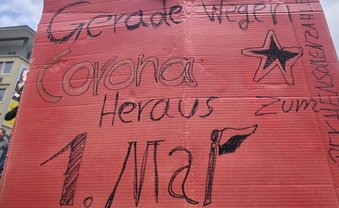 Gerade Wegen
Corona
Heraus zum
1. Mai